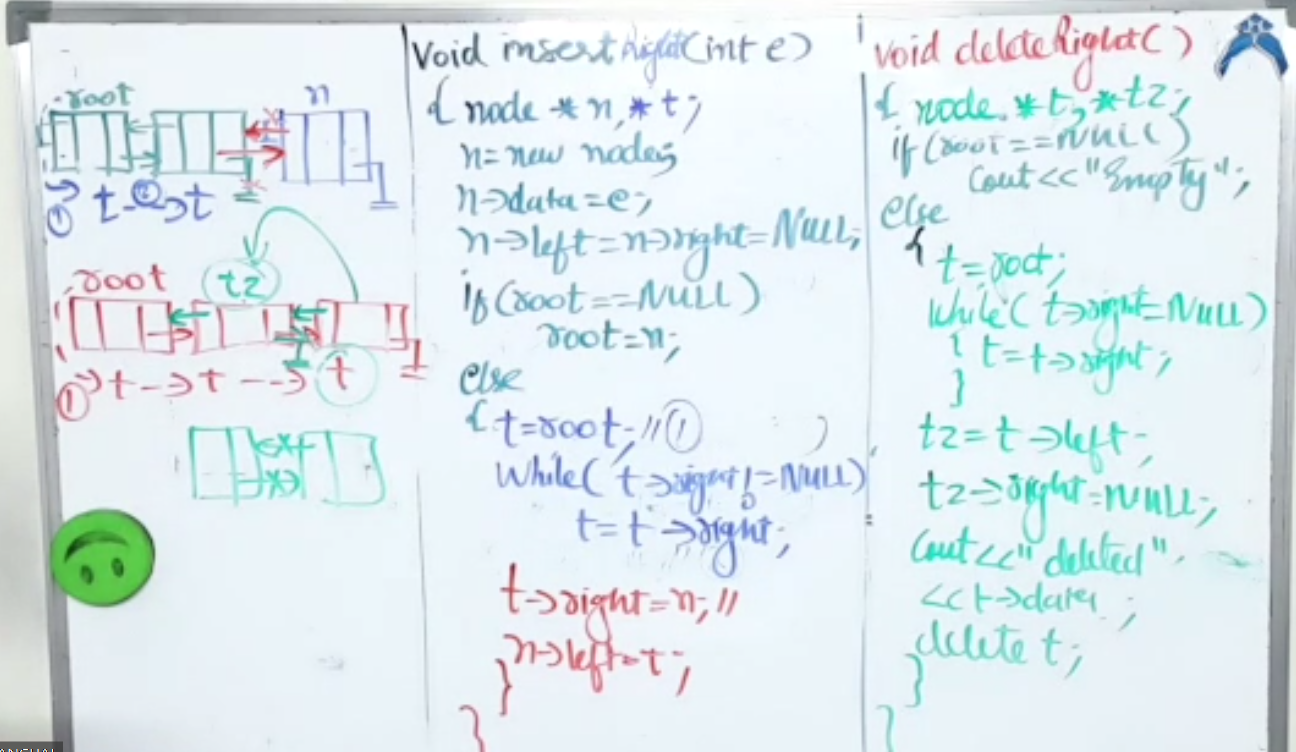 root
n
① t -②-> t
root
t2
① t --> t ---> t
Void insertRight(int e)
{ node *n, *t;
n=new node;
n->data=e;
n->left=n->right=NULL;
if(root==NULL)
root=n;
else
{ t=root; //①
While( t->right!=NULL)
t=t->right;
t->right=n; //
n->left=t;
}
}
void deleteRight()
{ node *t, *t2;
if(root==NULL)
Cout<<"Empty";
else
{ t=root;
While( t->right=NULL)
{ t=t->right;
}
t2=t->left;
t2->right=NULL;
Cout<<"deleted"
<<t->data;
delete t;
}
}